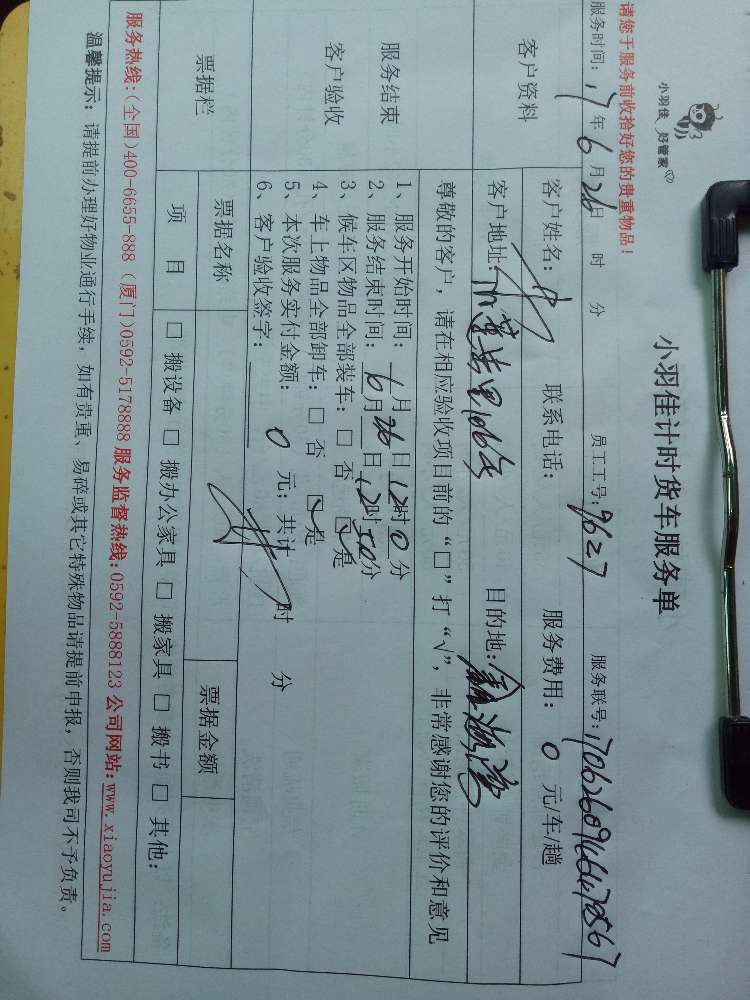 小羽佳 好管家
小羽佳计时货车服务单
请您于服务前收拾好您的贵重物品！
服务时间：17年6月26日 时 分 员工工号：9627 服务联号：
客户资料 客户姓名： 联系电话： 服务费用：0 元/车/趟
客户地址： 目的地：
服务结束
客户验收
尊敬的客户，请在相应验收项目前的“□”打“√”，非常感谢您的评价和意见
1、服务开始时间： 6月26日12时0分
2、服务结束时间： 月 日12时50分
3、候车区物品全部装车：□ 否 ☑ 是
4、车上物品全部卸车：□ 否 ☑ 是
5、本次服务实付金额： 0 元；共计 时 分
6、客户验收签字：
票据栏 票据名称 票据金额
项 目 □ 搬设备 □ 搬办公家具 □ 搬家具 □ 搬书 □ 其他：
服务热线：(全国)400-6655-888 (厦门)0592-5178888 服务监督热线：0592-5888123 公司网站：www.xiaoyujia.com
温馨提示：请提前办理好物业通行手续，如有贵重、易碎或其它特殊物品请提前申报，否则我司不予负责。